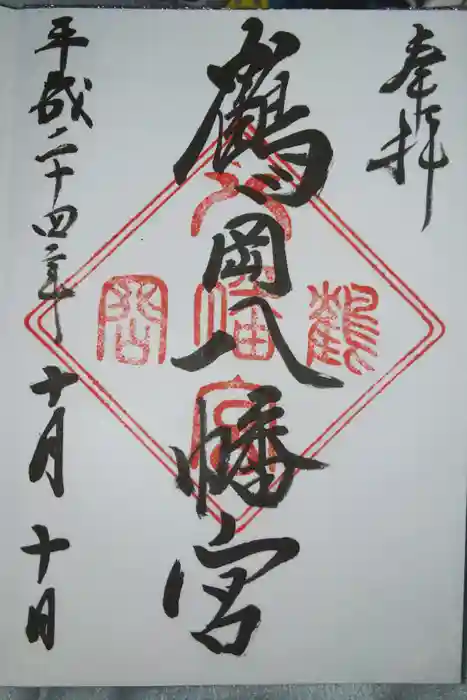 奉拝
鶴岡八幡宮
鶴岡八幡宮
平成二十四年十月十日